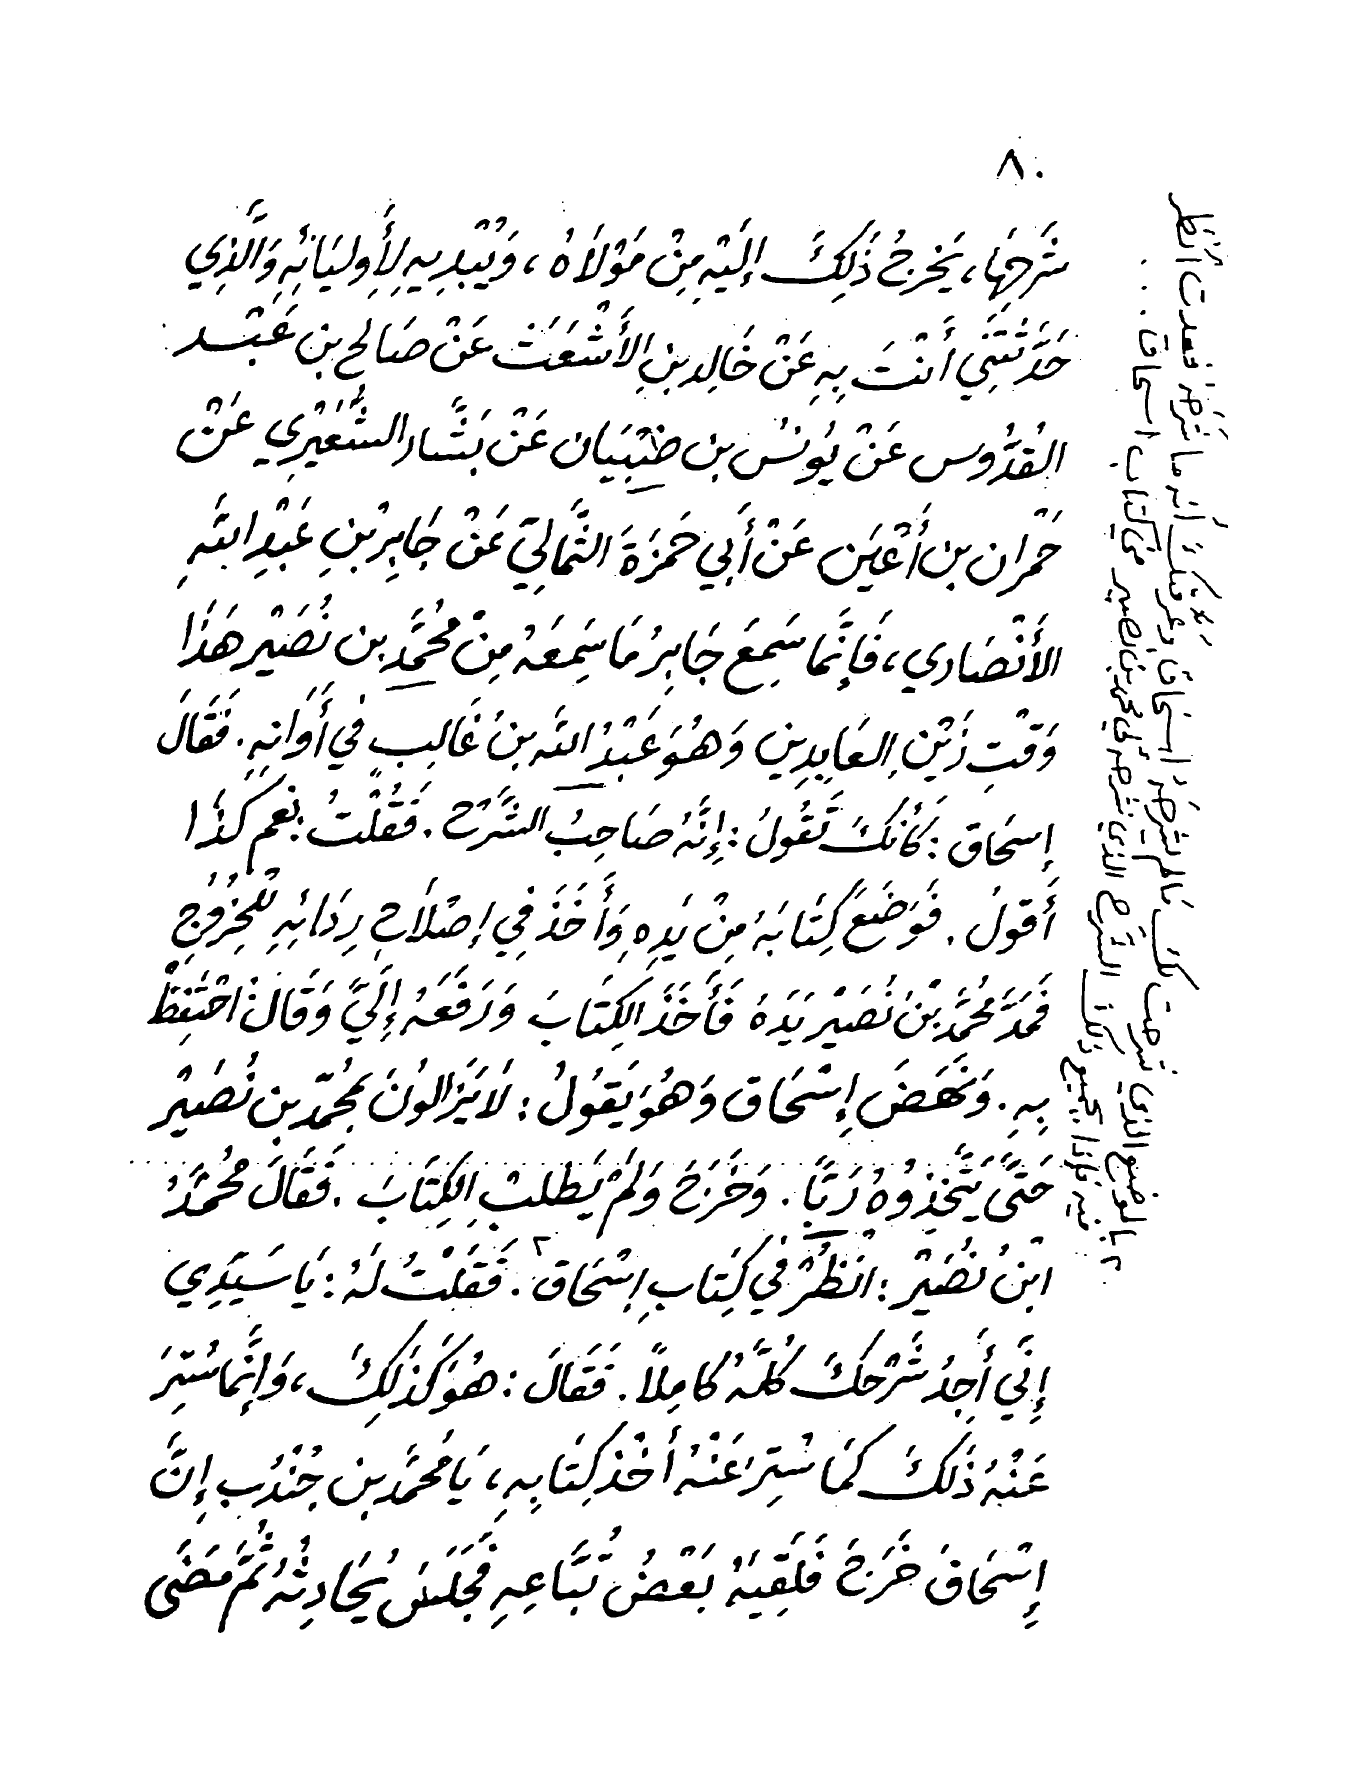 ٨٠
شَرَحَهَا، يَخْرُجُ ذَلِكَ إِلَيْهِ مِنْ مَوْلَاهُ، وَيُبْدِيهِ لِأَوْلِيَائِهِ وَالَّذِي
حَدَّثْتَنِي أَنْتَ بِهِ عَنْ خَالِدِ بنِ الأَشْعَثْ عَنْ صَالِحِ بن عَبْد
القُدُّوس عَنْ يُونُسْ بن ظَبْيَيان عَنْ بَشَّار الشُّعَيْرِي عَنْ
حُمْرَان بن أَعْيَن عَنْ أَبِي حَمْزَةَ الثَّمَالِيّ عَنْ جَابِرْ بْنِ عَبْدِ اللَّهِ
الأَنْصَارِي، فَإِنَّمَا سَمِعَ جَابِرُ مَا سَمِعَهُ مِنْ مُحَمَّد بن نُصَيْر هَذَا
وَقْتِ زَيْنِ العَابِدِين وَهُوَ عَبْدُ اللَّه بنُ غَالِبٍ فِي أَوَانِهِ. فَقَالَ
إِسحَاق: كَأَنَّكَ تَقُولُ: إِنَّهُ صَاحِبُ الشَّرْح. فَقُلْتُ: نعم كَذَا
أَقولُ. فَوَضَعَ كِتَابَهُ مِنْ يَدِهِ وَأَخَذَ فِي إِصْلَاحِ رِدَائِهِ لِلْخُرُوجِ
فَمَدَّ مُحَمَّدُ بْنُ نُصَيْر يَدَهُ فَأَخَذَ الكِتَابَ وَرَفَعَهُ إِلَيَّ وَقَالَ: احْتَفِظْ
بِهِ. وَنَهَضَ إِسْحَاق وَهُوَ يَقُولُ: لَا يَزَالونَ بِمُحَمّد بن نُصَيْر
حَتَّى يَتَّخِذُوهُ رَبًّا. وَخَرَجَ وَلَمْ يَطلبْ الكِتَابَ. فَقَالَ مُحُمَّدُ
ابْنُ نُصَيْر: انْظُرْ فِي كِتَابِ إِسْحَاق٢. فَقَلْتُ لَهُ: يَا سَيِّدِي
إِنِّي أَجِدُ شَرْحَكَ كُلَّهُ كَامِلًا. فَقَالَ: هُوَ كَذَلِكَ، وَإِنَّمَا سُتِرَ
عَنْهُ ذَلِكَ كَمَا سُتِرَ عَنْهُ أَخْذ كِتَابِهِ، يَا مُحَمَّد بن جُنْدُب إِنَّ
إِسْحَاقَ خَرَجَ فَلَقِيَهُ بَعْضُ تُبَّاعِهِ فَجَلَسَ يُحَادِثُهُ ثُمَّ مَضَى
٢ بالموضع الذي شرحت لك مالم يشرحهُ إسحاق وعرفتك أنه ما شرحه فعدت أنظر
فيه فإذا بجميع ذلك الشرح الذي شرحه لي محمد بن نصير من كتاب اسحاق...